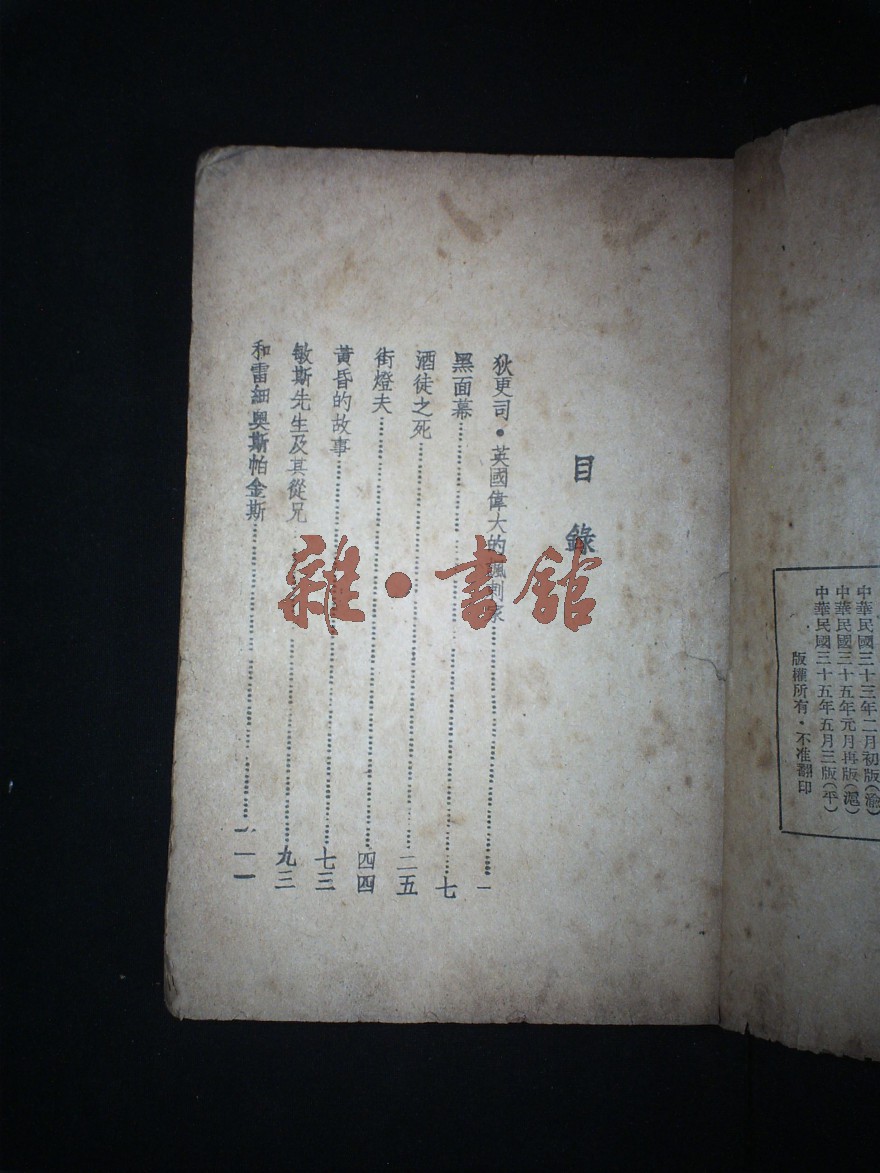 中華民國三十三年二月初版(渝)
中華民國三十五年元月再版(滬)
中華民國三十五年五月三版(平)
版權所有・不准翻印
目錄
狄更司・英國偉大的諷刺家……一
黑面幕……七
酒徒之死……二五
街燈夫……四四
黃昏的故事……七三
敏斯先生及其從兄……九三
和雷細奧斯帕金斯……一一一
雜・書館